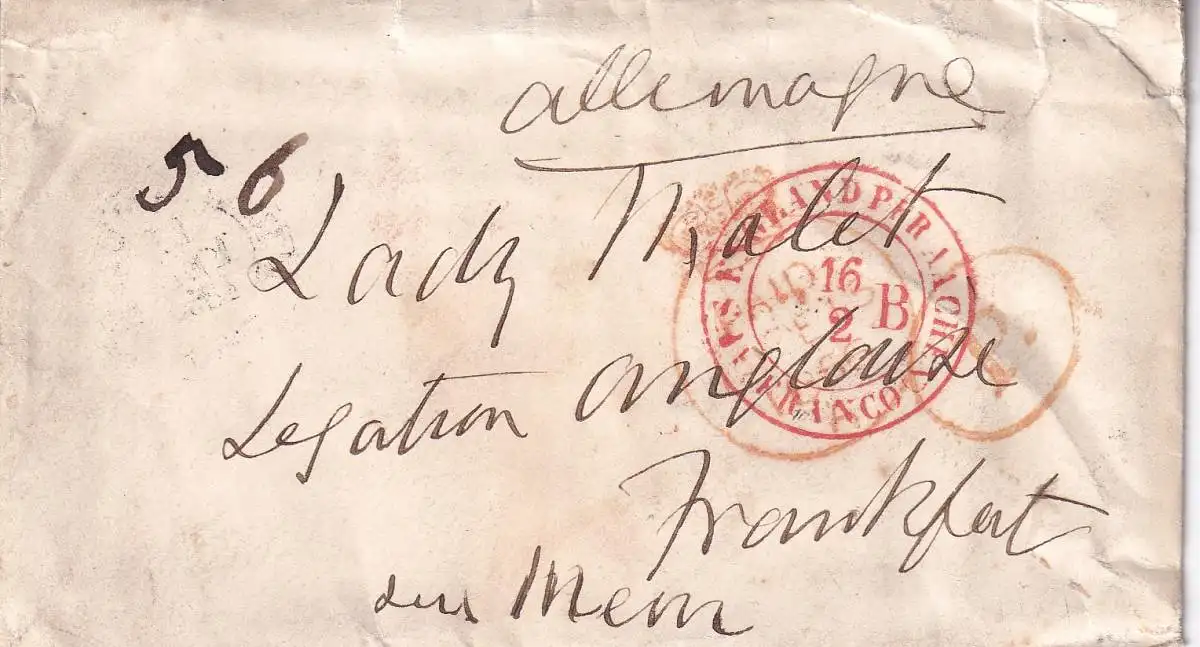 allemagne
56
Lady Malet
Legation anglaise
Frankfort
sur Mein
AUS ENGLAND PER AACHEN
16
2
B
FRANCO